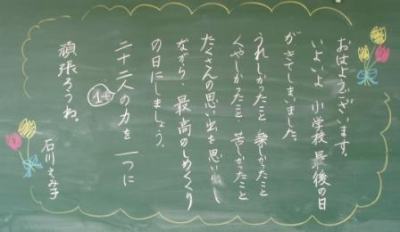 おはようございます。
いよいよ 小学校最後の日
がきてしまいました。
うれしかったこと 楽しかったこと
くやしかったこと 苦しかったこと
たくさんの思い出を思い出し
ながら、最高のしめくくり
の日にしましょう。
二十二人の力を 一つに
頑張ろうね。
石川 子